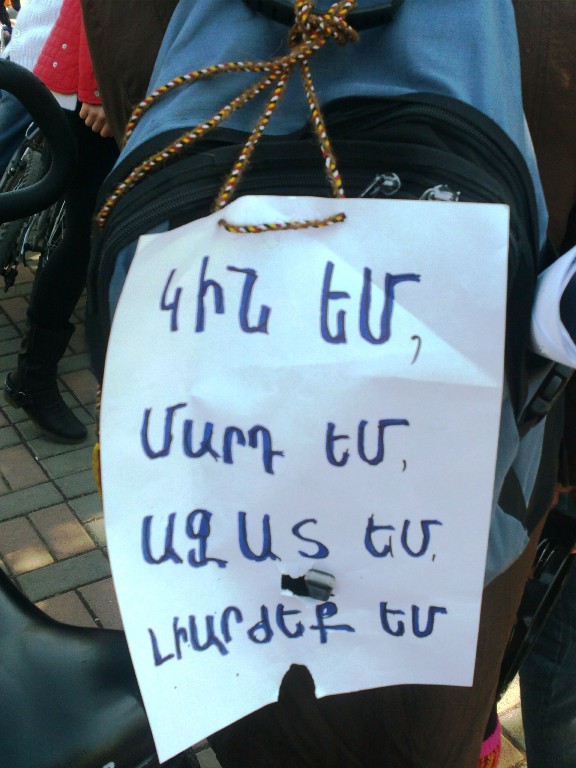 ԿԻՆ ԵՄ,
ՄԱՐԴ ԵՄ,
ԱԶԱՏ ԵՄ,
ԼԻԱՐԺԵՔ ԵՄ